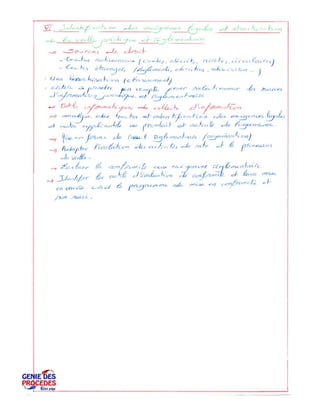 VI Identification des exigences légales et structuration
de la veille juridique et réglementaire
→ Sources de droit
- Textes nationaux (codes, décrets, arrêtés, circulaires)
- Textes étrangers (règlements, directives, décisions ...)
- Une hiérarchisation (classement)
- critères à prendre en compte pour sélectionner les sources
d'informations juridiques et réglementaires
→ Outils informatiques de collecte d'information
→ analyse des textes et identification des exigences légales
et autres applicables au produit et activité de l'organisme
→ Mise en forme de réglementaire (organisation)
→ Adapter l'évolution des activités du site et le processus
de veille.
→ Evaluer la conformité aux exigences réglementaires
→ Identifier les outils d'évaluation de conformité et leurs mise
en œuvre le programme de mise en conformité et
son suivi.
GENIE DES
PROCEDES